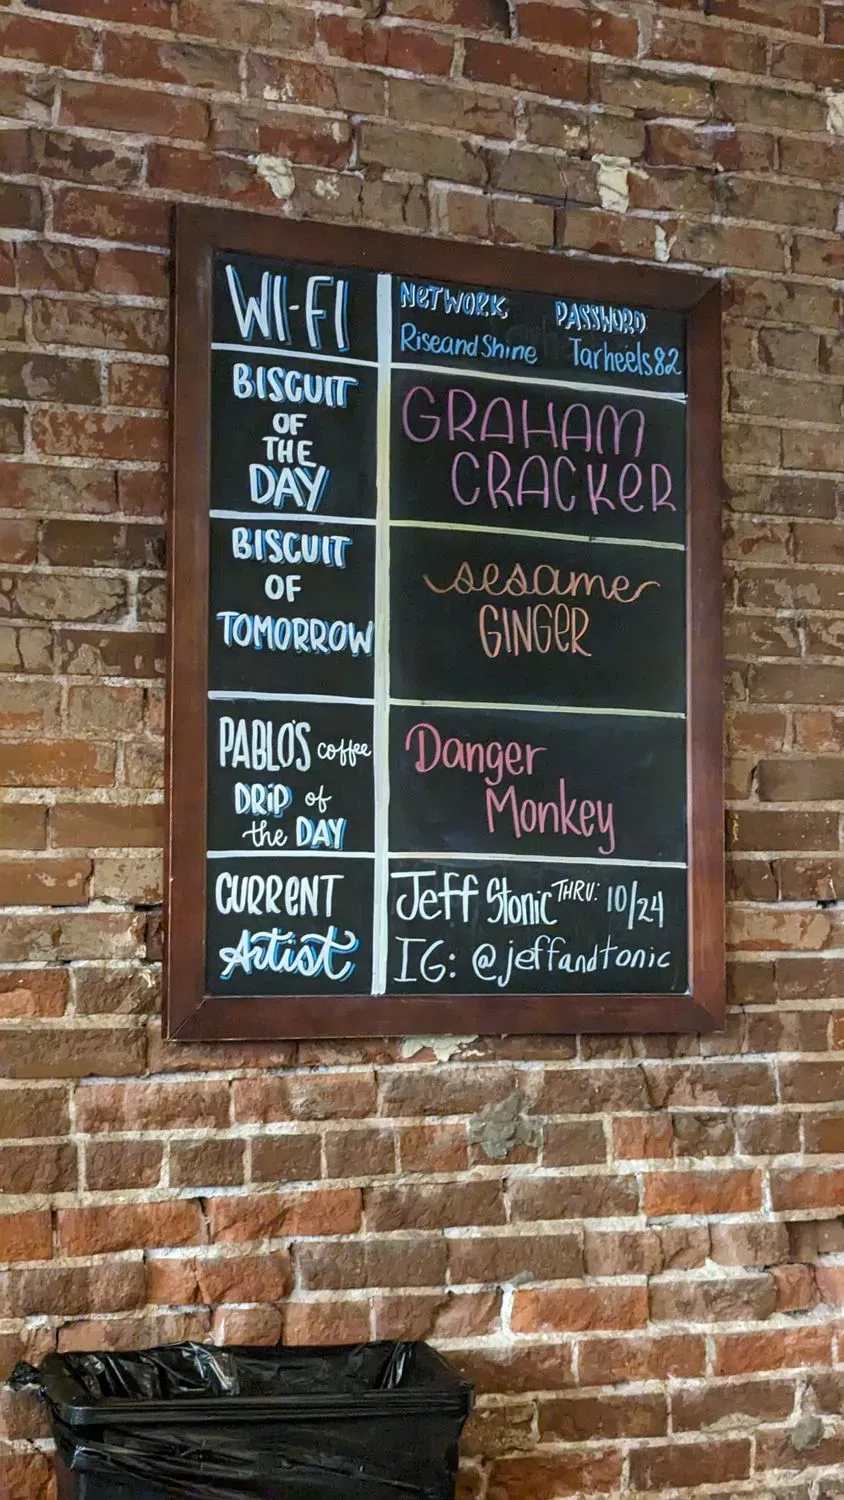 WI-FI
NETWORK PASSWORD
RiseandShine Tarheels82
BISCUIT
OF
THE
DAY
GRAHAM
CRACKER
BISCUIT
OF
TOMORROW
sesame
GINGER
PABLO'S coffee
DRIP of
the DAY
Danger
Monkey
CURRENT
Artist
Jeff Stonic THRU: 10/24
IG: @jeffandtonic